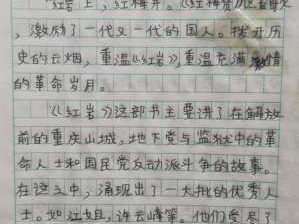 红岩上，红梅开。《红梅赞》
，激励了一代又一代的国人。拨开历
史的云烟，重温《红岩》，重温充满激情
的革命岁月。
《红岩》这部书主要讲了在解放
前的重庆山城，地下党与监狱中的革
命人士和国民党反动派斗争的故事。
在这之中，涌现出了一大批的优秀人
士。如江姐，许云峰等。他们受尽了